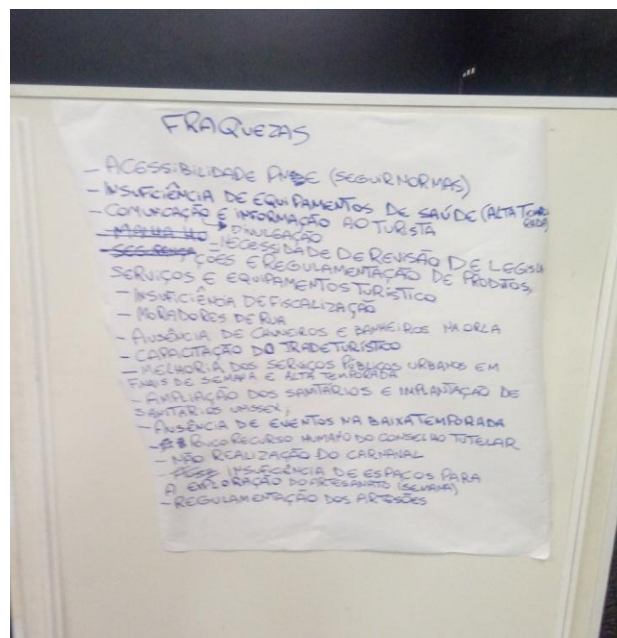 FRAQUEZAS
- ACESSIBILIDADE (SEGUIR NORMAS)
- INSUFICIÊNCIA DE EQUIPAMENTOS DE SAÚDE (ALTA TEMPO
RADA)
- COMUNICAÇÃO E INFORMAÇÃO AO TURISTA
DIVULGAÇÃO
- NECESSIDADE DE REVISÃO DE LEGISLA
ÇÕES E REGULAMENTAÇÃO DE PRODUTOS,
SERVIÇOS E EQUIPAMENTOS TURÍSTICO
- INSUFICIÊNCIA DE FISCALIZAÇÃO
- MORADORES DE RUA
- AUSÊNCIA DE CHUVEIROS E BANHEIROS NA ORLA
- CAPACITAÇÃO DO TRADE TURÍSTICO
- MELHORIA DOS SERVIÇOS PÚBLICOS URBANOS EM
FINAIS DE SEMANA E ALTA TEMPORADA
- AMPLIAÇÃO DOS SANITÁRIOS E IMPLANTAÇÃO DE
SANITÁRIOS UNISSEX;
- AUSÊNCIA DE EVENTOS NA BAIXA TEMPORADA
- POUCO RECURSO HUMANO DO CONSELHO TUTELAR
- NÃO REALIZAÇÃO DO CARNAVAL
- INSUFICIÊNCIA DE ESPAÇOS PARA
A EXPLORAÇÃO DO ARTESANATO (SEMANA)
- REGULAMENTAÇÃO DOS ARTESÕES